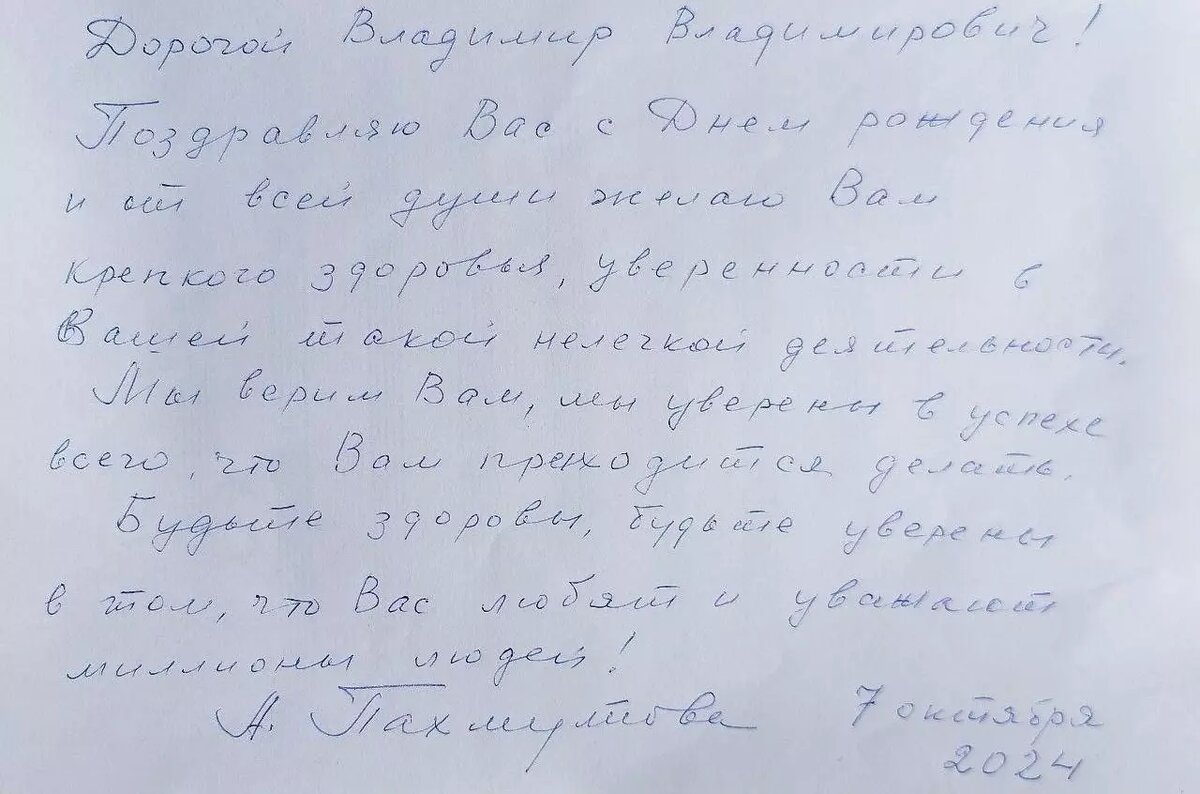 Дорогой Владимир Владимирович!
Поздравляю Вас с Днем рождения
и от всей души желаю Вам
крепкого здоровья, уверенности в
Вашей такой нелегкой деятельности.
Мы верим Вам, мы уверены в успехе
всего, что Вам приходится делать.
Будьте здоровы, будьте уверены
в том, что Вас любят и уважают
миллионы людей!
А. Пахмутова 7 октября
2024